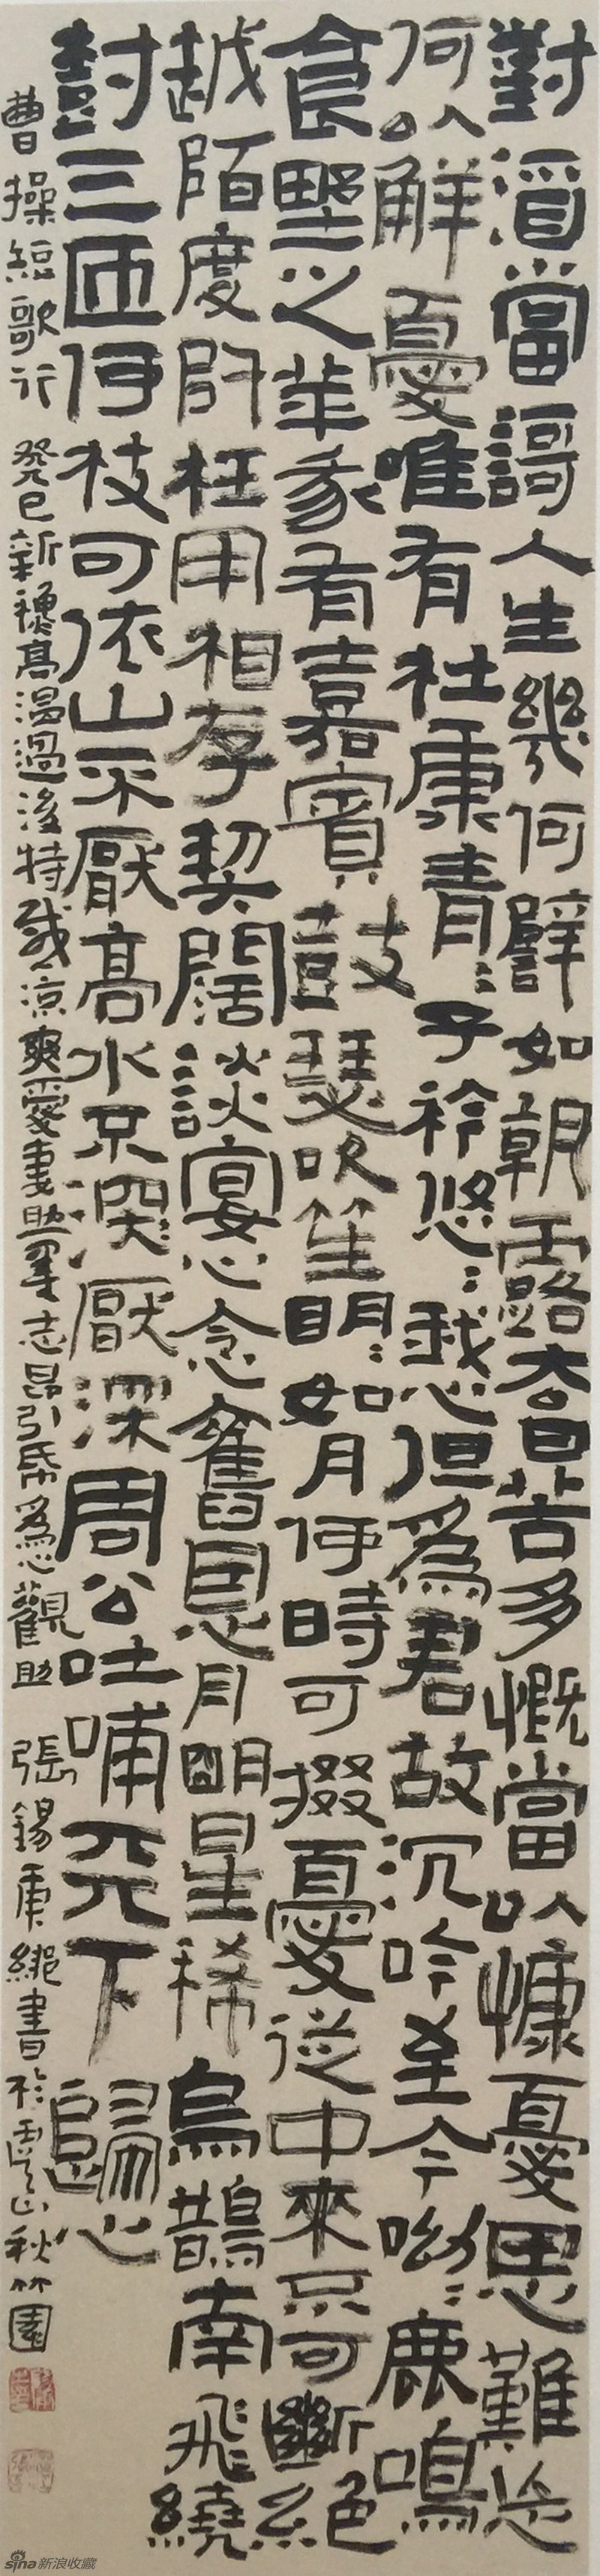 對酒當謌人生幾何譬如朝露去日苦多慨當以慷憂思難忘
何以解憂唯有杜康青:子衿悠:我心但為君故沉吟至今呦:鹿鳴
食野之苹我有嘉賓鼓瑟吹笙明:如月何時可掇憂從中來不可斷絕
越陌度阡枉用相存契闊談宴心念舊恩月明星稀烏鵲南飛繞
樹三匝何枝可依山不厭高水不厭深周公吐哺天下歸心
曹操短歌行 癸巳新穗高溫過後特感涼爽愛妻助墨志昂引為心觀助 張錫庚書於虞山秋竹園
sina新浪收藏